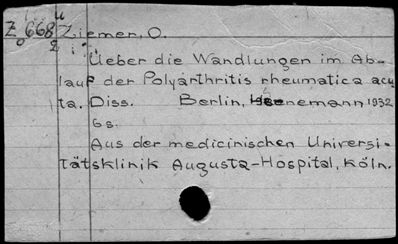 u
Z 668 Ziemer, O.
o 2
Ueber die Wandlungen im Ab-
lauf der Polyarthritis rheumatica acu
ta. Diss. Berlin, Hoenemann 1932
6 s.
Aus der medicinischen Universi-
tätsklinik Augusta-Hospital, Köln.